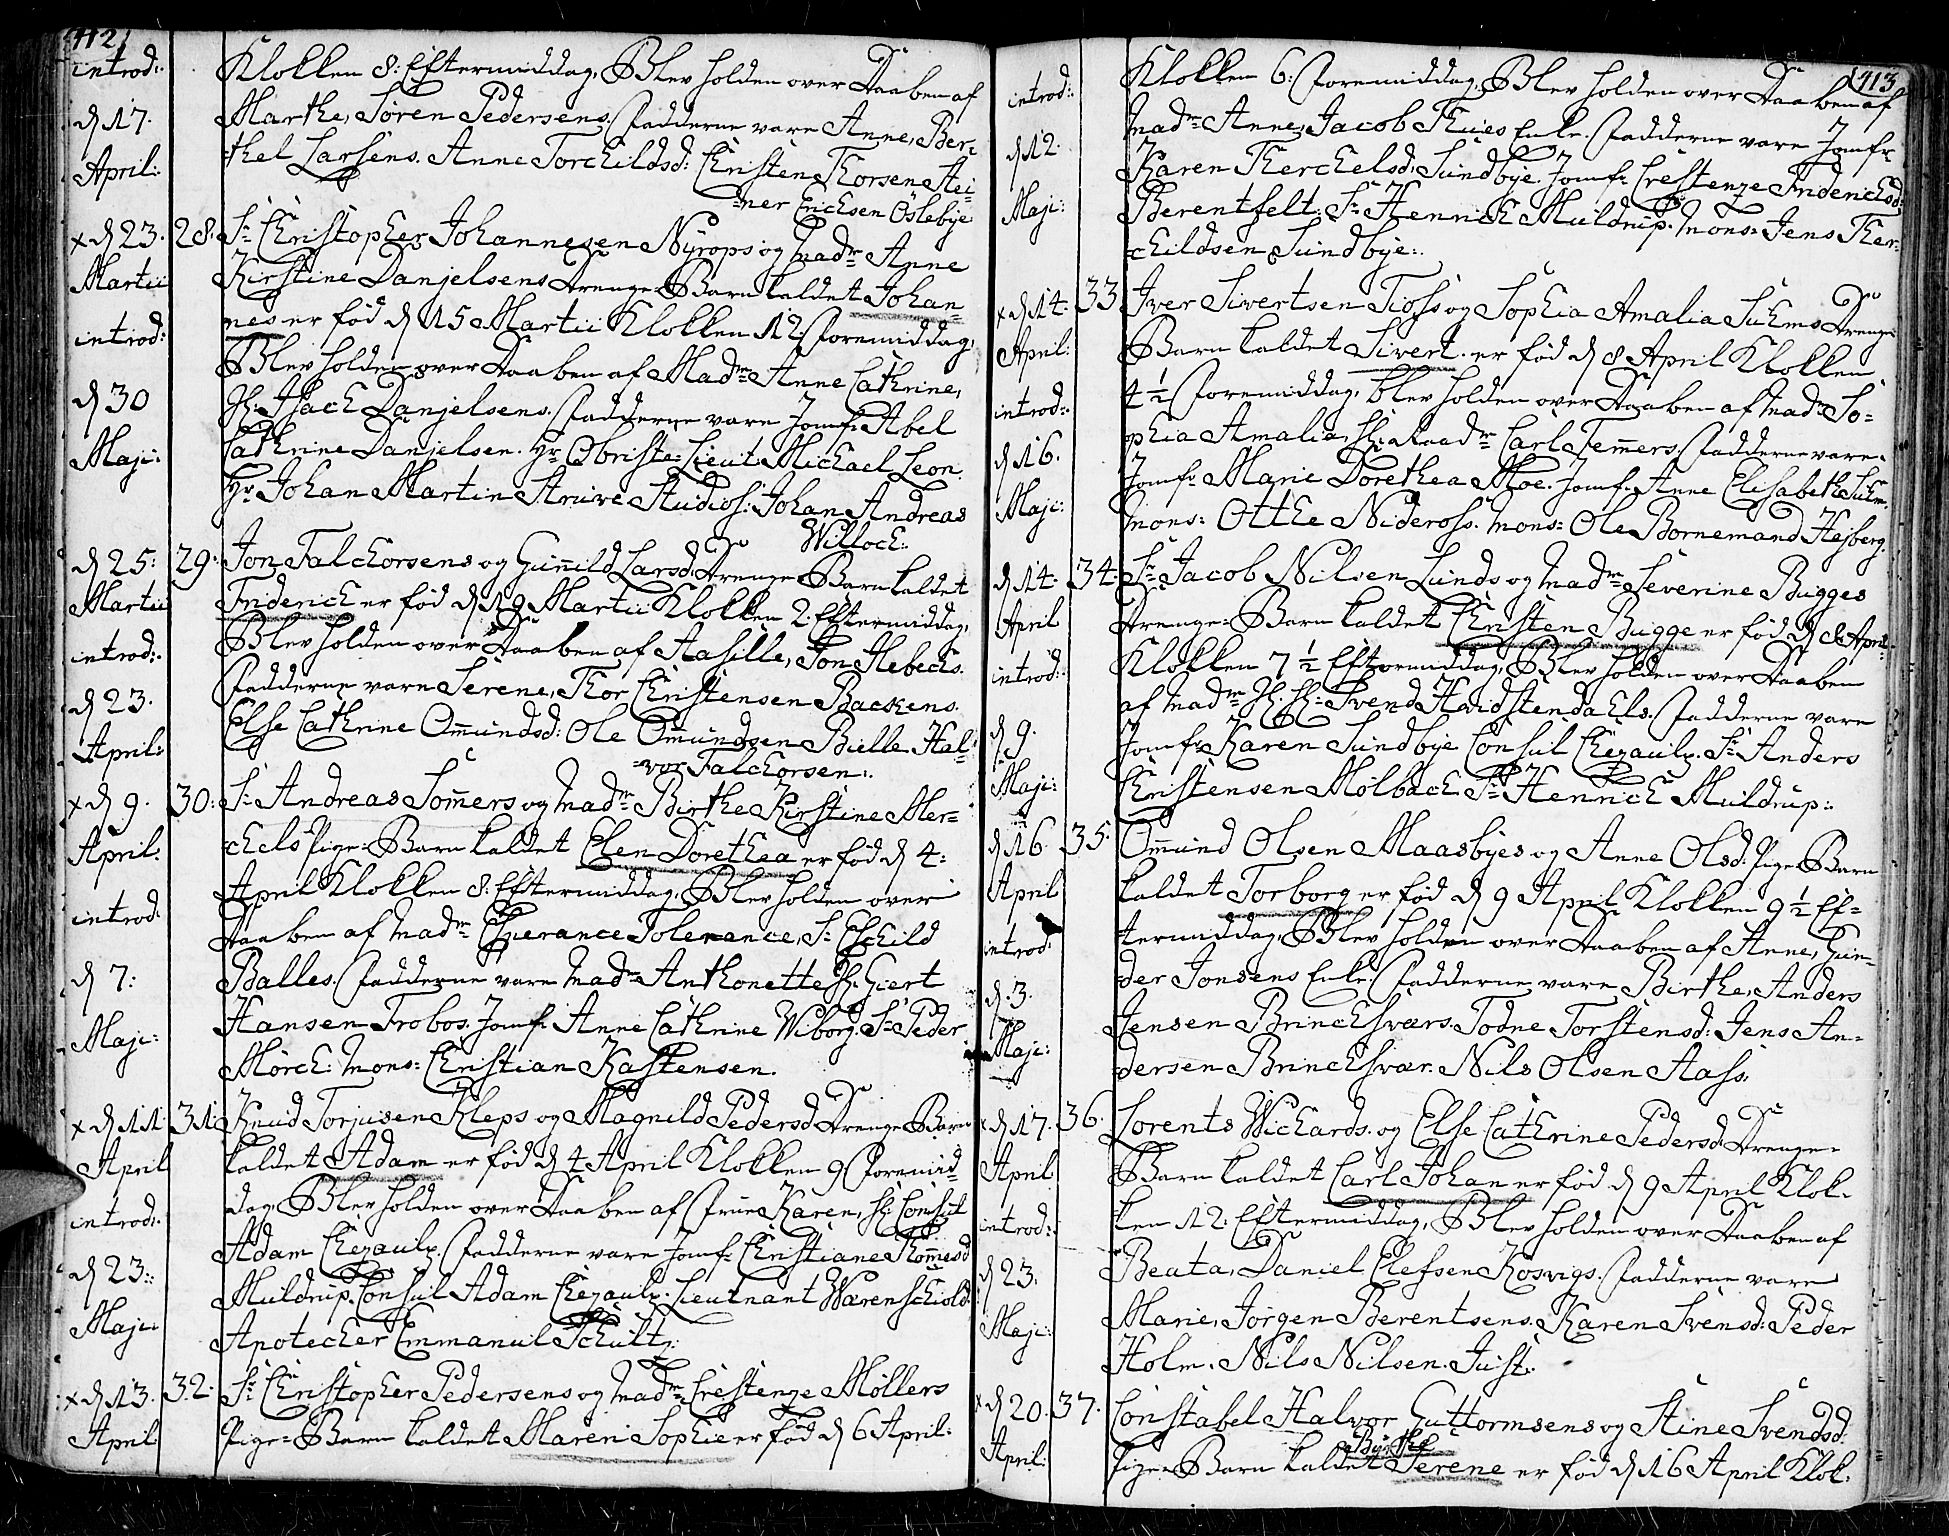 412
introd: Klokken 8: Eftermiddag, Blev holden over Daaben af
d 17. Marthe, Søren Pedersens. Fadderne vare Anne, Ber-
April: thel Larsens. Anne Torchildsd: Christen Thorsen. Hei-
-ner Erichsen Oslebye
x d 23. 28. Sr Christopher Johannesen Nyrops og Madme Anne
Martii Kirstine Danjelsens Drenge-Barn kaldet Johan-
introd: nes er fød d 15 Martii Klokken 12. Formiddag,
Blev holden over Daaben af Madme Anne Cathrine,
d 30 H: Isach Danjelsens. Fadderne vare Jomf: Abel
Maji: Cathrine Danjelsen. Hr Obriste-Lieut: Michael Leon.
Hr Johan Martin Struve Studios: Johan Andreas
Willoch:
d 25: 29. Jon Falchorsens og Gunnild Larsd: Drenge-Barn kaldet
Martii Friderich er fød d 19 Martii Klokken 2. Eftermiddag,
introd: Blev holden over Daaben af Aasille, Jon Hebechs.
d 23. Fadderne vare Serene, Thor Christensen Backens.
April: Else Cathrine Ommundsd: Ole Ommundsen Bielle. Hal-
-vor Falchorsen:
x d 9. 30: Sr Andreas Sommers og Madme Birthe Kirstine Mer-
April: chels Pige-Barn kaldet Elen Dorethea er fød d 4:
April Klokken 8: Eftermiddag, Blev holden over
introd: Daaben af Madme Esperance Tolerance, Sr Eschild
d 7: Balles. Fadderne vare Madme Anthonette H: Giert
Hansen Frobos. Jomf: Anne Cathrine Wiborg. Sr Peder
Maji: Mørch: Mons: Christian Kastensen.
x d 11 31: Knud Torjusen Kleps og Magnild Pedersd: Drenge-Barn
April kaldet Adam er fød d 4 April Klokken 9 Formid-
introd: dag, Blev holden over Daaben af Frue Karen, H: Consul
Adam Chezaulx. Fadderne vare Jomf: Christiane Thomesd:
d 23: Muldrup. Consul Adam Chezaulx. Lieutnant Wærenschiold.
Maji: Apotecher Emmanuil Schultz.
x d 13. 32: Sr Christopher Pedersens og Madme Crestenze Møllers
April Pige-Barn kaldet Maren Sophie er fød d 6 April:
413
introd: Klokken 6: Formiddag, Blev holden over Daaben af
Madme Anne, Jacob Thues Enke. Fadderne vare Jomfr
d 12. Karen Therchelsd: Sundbye. Jomf: Crestenze Friderichsd:
Maji: Berentfelt. Sr Henrich Muldrup. Mons: Jens Ther-
childsen Sundbye:
x d 14. 33 Iver Sivertsen Tioss og Sophia Amalia Suhms Drenge
April: Barn kaldet Sivert. er fød d 8 April Klokken
introd: 4 1/2 Formiddag, blev holden over Daaben af Madme So-
phia Amalia, H: Raadme Carl Temmers. Fadderne vare
d 16. Jomf: Marie Dorethea Moe. Jomf: Anne Elisabeth Suhm.
Maji: Mons: Otthe Nideross. Mons: Ole Bornemand Hejberg.
d 14. 34: Sr Jacob Nilsen Lunds og Madme Severine Bugges
April Drenge-Barn kaldet Christen Bugge er fød d 8 April
introd: Klokken 7 1/2 Eftermiddag, Blev holden over Daaben
af Madme H: H: Svend Hvidstendahls. Fadderne vare
d 9. Jomf: Karen Sundbye Consul Chezaulx. Sr Anders
Maji: Christensen Molbach Sr Henrich Muldrup:
d 16. 35: Ommund Olsen Maasbyes og Anne Olsd: Pige-Barn
April kaldet Torborg er fød d 9 April Klokken 9 1/2 Ef-
introd: termiddag, Blev holden over Daaben af Anne, Gun-
d 3. der Jonsens Enke. Fadderne vare Birthe, Anders
Jensen Brinchsværs. Todne Torstensd: Jens An-
Maji: dersen Brinchsvær. Nils Olsen Aass.
x d 17. 36. Lorents Wichards. og Else Cathrine Pedersd: Drenge-
April Barn kaldet Carl Johan er fød d 9 April Klok-
introd: ken 12: Eftermiddag, Blev holden over Daaben af
d 23. Beata, Daniel Elefsen Kosvigs. Fadderne vare
Maji: Marie, Jørgen Berentsens. Karen Svensd: Peder
Holm. Nils Nilsen Juist:
x d 20. 37. Constabel Halvor Guttormsens og Stine Svendsd:
Byrthe
April: Pige-Barn kaldet Serene er fød d 16 April Klok-